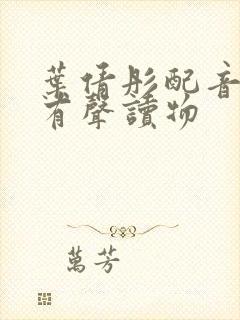 葉倩彤配音
有聲讀物
萬芳